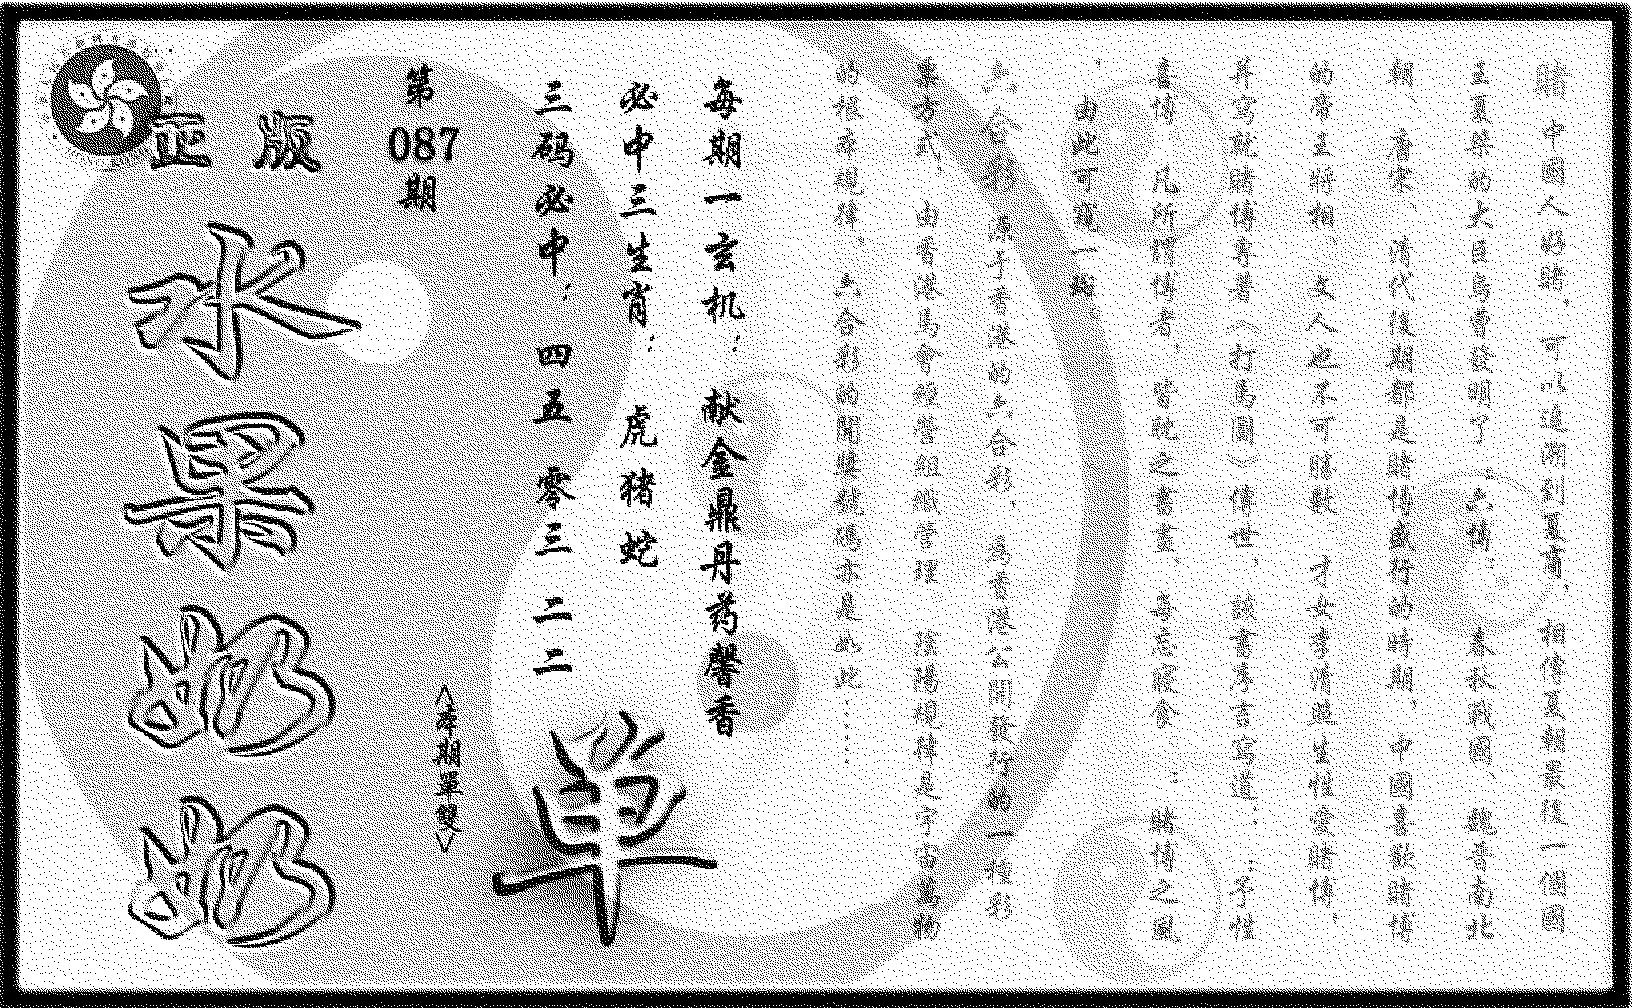 賭中國人好賭，可以追溯到夏商，相傳夏朝最後一個國
王夏桀的大臣烏曹發明了：六博；春秋戰國、魏晉南北
朝、唐宋、清代後期都是賭博盛行的時期，中國喜歡賭博
的帝王將相、文人也不可勝數，才女李清照生性愛賭博，
并寫就賭博專著（打馬圖）傳世，該書序言寫道：：予性
喜博，凡所謂博者，皆耽之晝夜，每忘寢食，：賭博之風
，由此可窺一斑。
六合彩，源于香港的六合彩，爲香港公開發行的一種彩
票方式，由香港馬會經營組織管理，陰陽規律是宇宙萬物
的根本規律，六合彩的開獎號碼亦是如此……
每期一玄机：献金鼎丹药馨香
必中三生肖：虎猪蛇
三码必中：四五 零三 二二
單
<本期單雙>
第087期
正版
水果奶奶